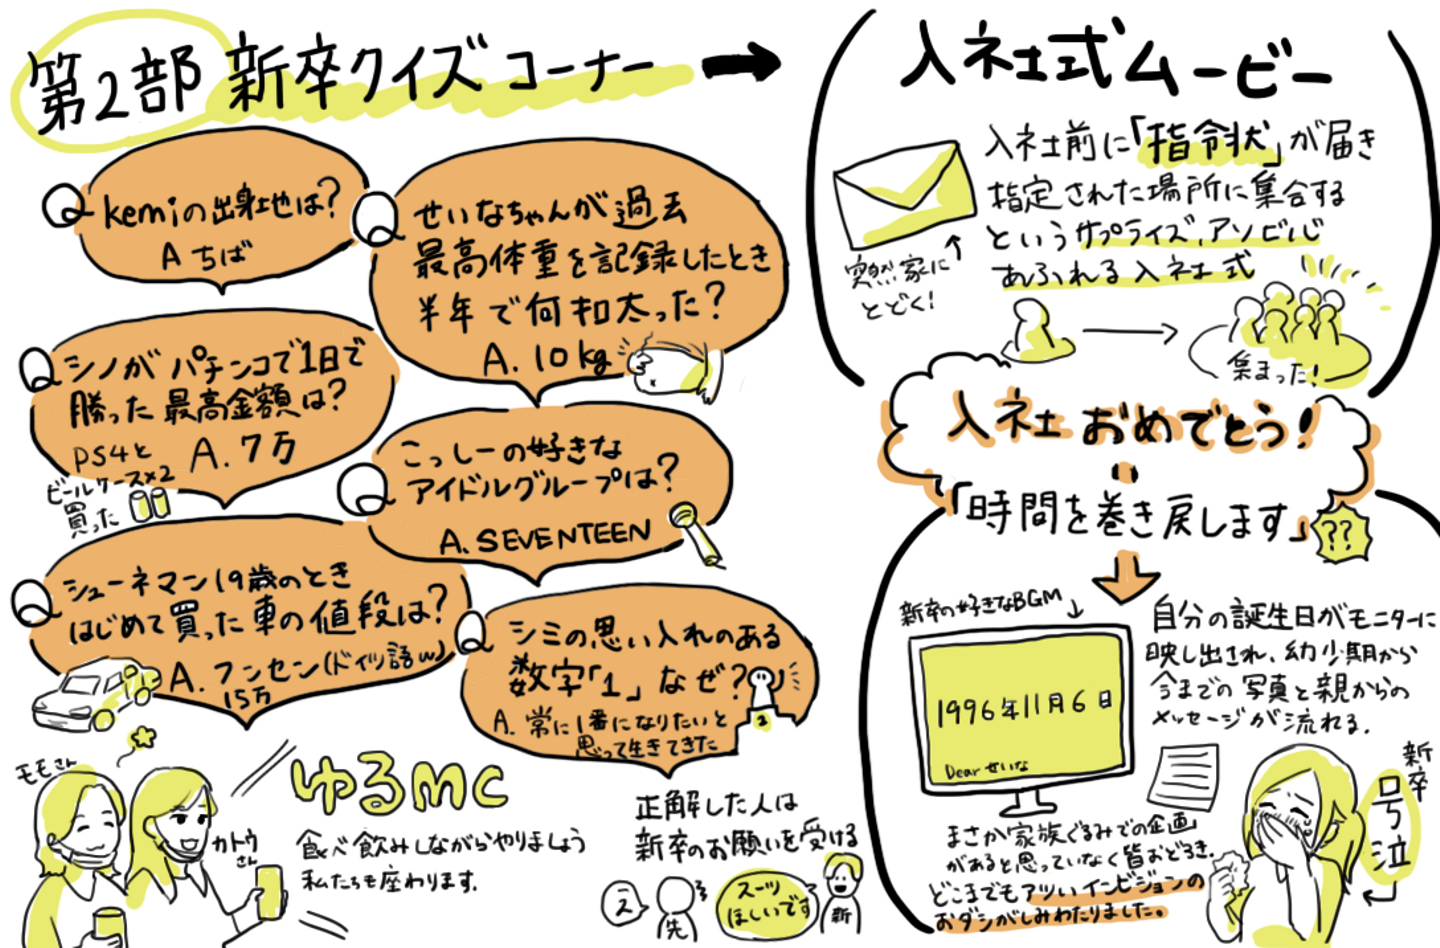 第2部 新卒クイズコーナー → 入社式ムービー
Q kemiの出身地は?
A ちば
Q せいなちゃんが過去
最高体重を記録したとき
半年で何キロ太った?
A. 10kg
Q シノがパチンコで1日で
勝った最高金額は?
A. 7万
PS4と
ビールケース×2
買った
Q こっしーの好きな
アイドルグループは?
A. SEVENTEEN
Q シューネマン19歳のとき
はじめて買った車の値段は?
A. フンセン(ドイツ語w)
15万
Q シミの思い入れのある
数字「1」なぜ?
A. 常に1番になりたいと
思って生きてきた
1
モモさん
カトウ
さん
ゆるmc
食べ飲みしながらやりましょう
私たちも座わります.
正解した人は
新卒のお願いを受ける
え
先
スーツ
ほしいです
新
入社前に「指令状」が届き
指定された場所に集合する
というサプライズ、アソビ心
あふれる入社式
突然家に
とどく!
集まった!
入社おめでとう!
「時間を巻き戻します」
??
新卒の好きなBGM
1996年11月6日
Dear せいな
自分の誕生日がモニターに
映し出され、幼少期から
今までの写真と親からの
メッセージが流れる.
新卒
号泣
まさか家族ぐるみでの企画
があると思っていなく皆おどろき.
どこまでもアツいインビジョンの
おダシがしみわたりました。